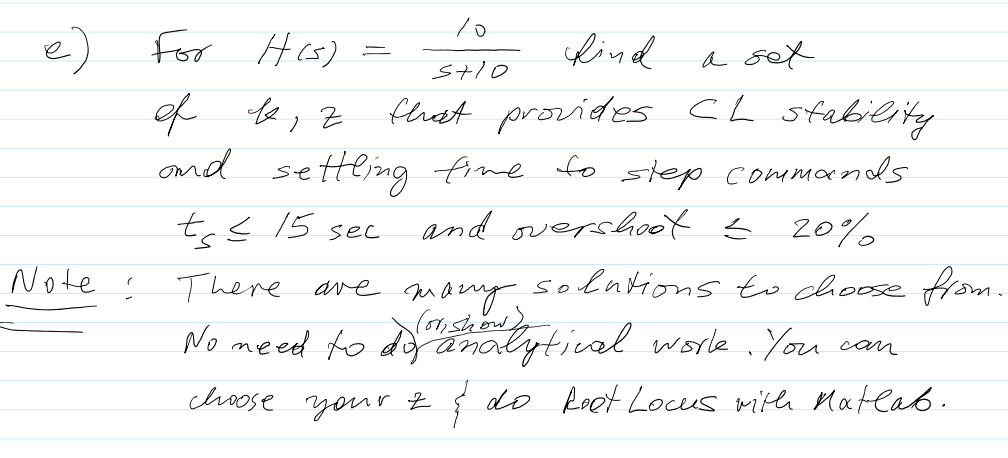 e) For H(s) = 10/(s+10) find a set
of k, z that provides CL stability
and settling time to step commands
ts ≤ 15 sec and overshoot ≤ 20%
Note : There are many solutions to choose from.
(or, show)
No need to do analytical work. You can
choose your z & do Root Locus with Matlab.